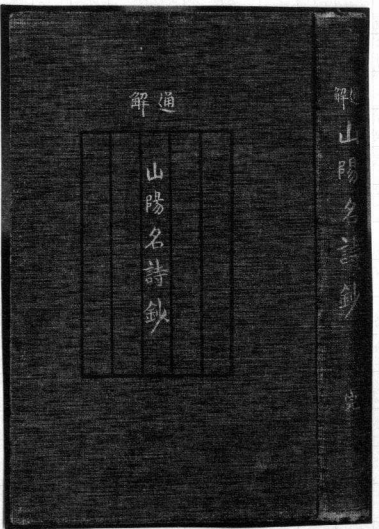 通解
山陽名詩鈔
通解 山陽名詩鈔 完